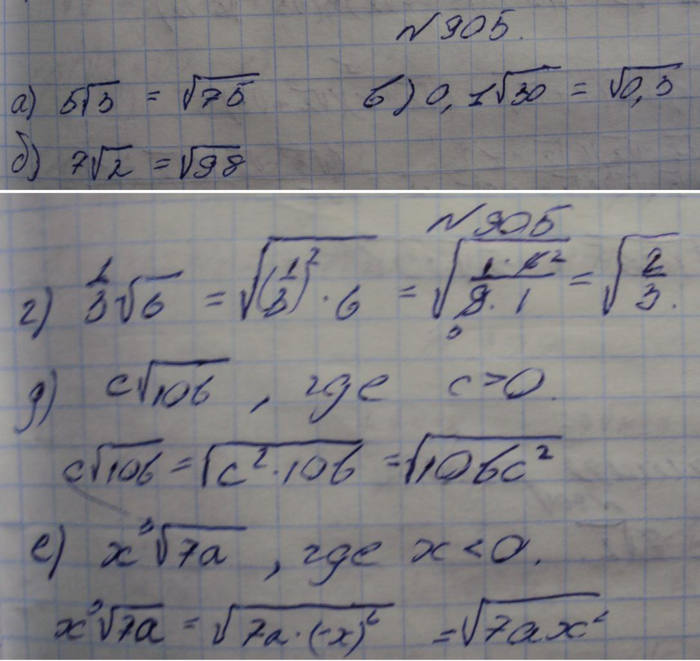 №905.
а) 5√3 = √75 в) 0,1√30 = √0,3
б) 7√2 = √98
№905
г) 1/3√6 = √((1/3)² · 6) = √(1·6²/9·1) = √(2/3).
д) c√10b, где c>0.
c√10b = √c²·10b = √10bc²
е) x³√7a, где x<0.
x³√7a = √7a·(-x)² = √7ax²